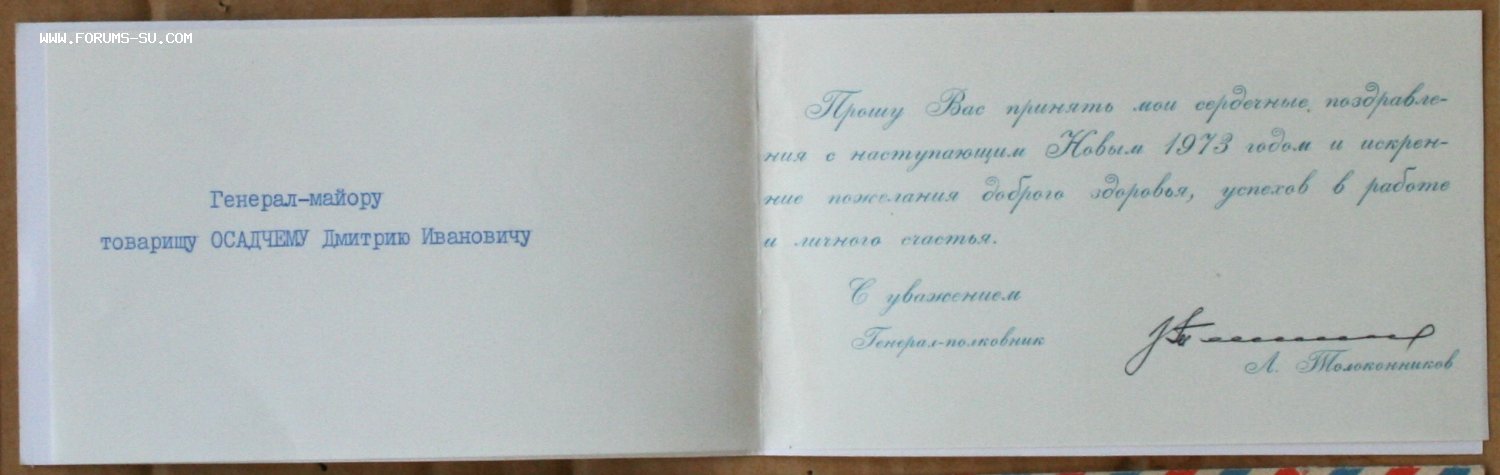 WWW.FORUMS-SU.COM
Генерал-майору
товарищу ОСАДЧЕМУ Дмитрию Ивановичу
Прошу Вас принять мои сердечные поздравле-
ния с наступающим Новым 1973 годом и искрен-
ние пожелания доброго здоровья, успехов в работе
и личного счастья.
С уважением
Генерал-полковник
А. Толоконников